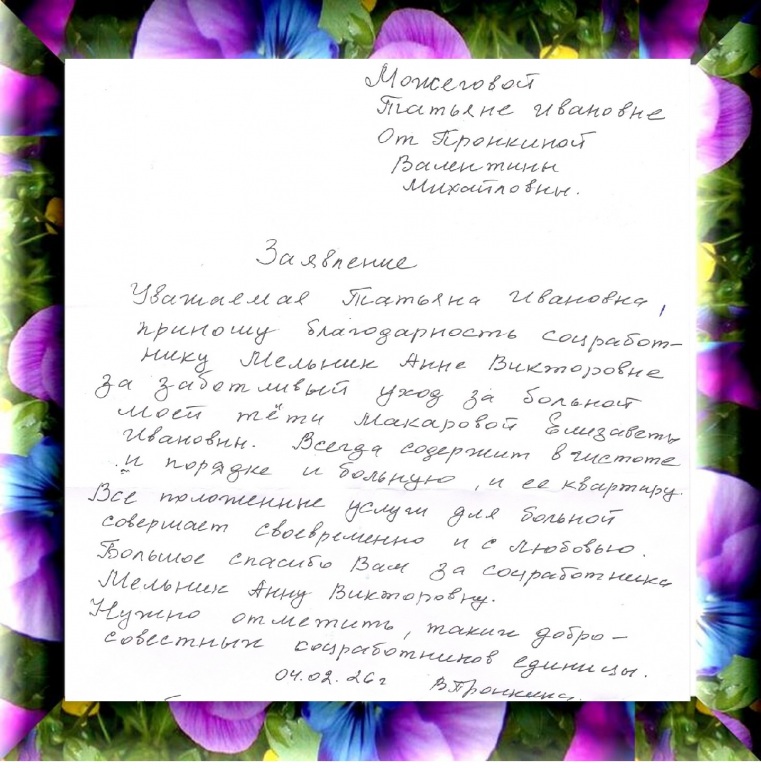 Можеговой
Татьяне Ивановне
От Пронкиной
Валентины
Михайловны.
Заявление
Уважаемая Татьяна Ивановна,
приношу благодарность соцработ-
нику Мельник Анне Викторовне
за заботливый уход за больной
моей тёти Макаровой Елизаветы
Ивановн. Всегда содержит в чистоте
и порядке и больную, и ее квартиру.
Все положенные услуги для больной
совершает своевременно и с любовью.
Большое спасибо Вам за соцработника
Мельник Анну Викторовну.
Нужно отметить, таких добро-
совестных соцработников единицы.
04.02.26г В.Пронкина